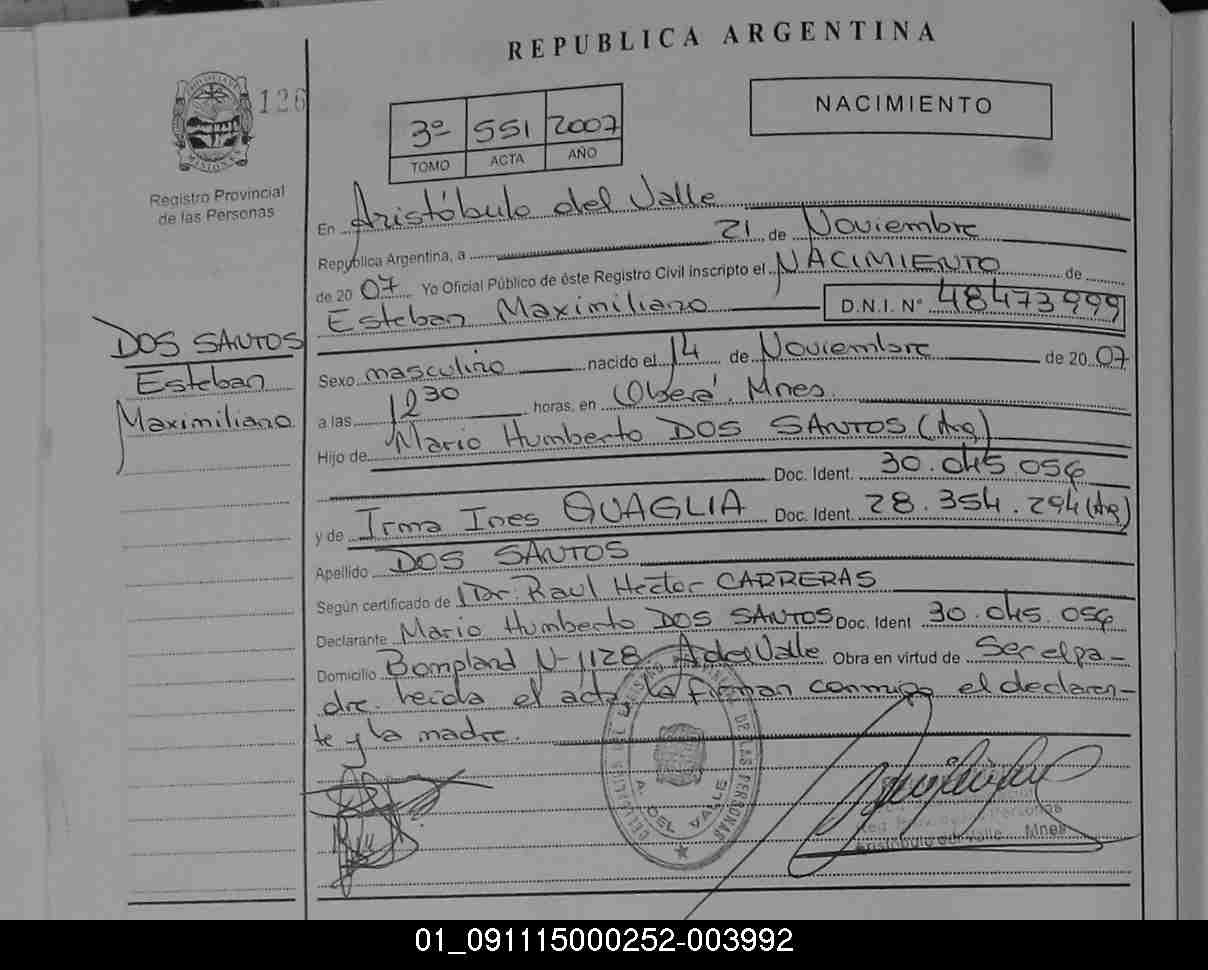 REPUBLICA ARGENTINA
126
NACIMIENTO
3º 551 2007
TOMO ACTA AÑO
MISIONES
Registro Provincial
de las Personas
En Aristóbulo del Valle
República Argentina, a 21 de Noviembre
de 20 07 Yo Oficial Público de éste Registro Civil inscripto el NACIMIENTO de
Esteban Maximiliano D.N.I. Nº 48473999
DOS SANTOS
Esteban
Maximiliano
Sexo masculino nacido el 14 de Noviembre de 20 07
a las 12 30 horas, en Oberá. Mnes.
Hijo de Mario Humberto DOS SANTOS (Arg)
Doc. Ident. 30.045.056
y de Irma Ines QUAGLIA Doc. Ident. 28.354.294 (Arg)
Apellido DOS SANTOS
Según certificado de Dr. Raul Hector CARRERAS
Declarante Mario Humberto DOS SANTOS Doc. Ident 30.045.056
Domicilio Bompland Nº 1128 A del Valle Obra en virtud de Ser el pa-
dre. Leída el acta, la firman conmigo el declaran-
te y la madre.
DE LAS PERSONAS
A. DEL VALLE
Aristóbulo del Valle Mnes
01_091115000252-003992